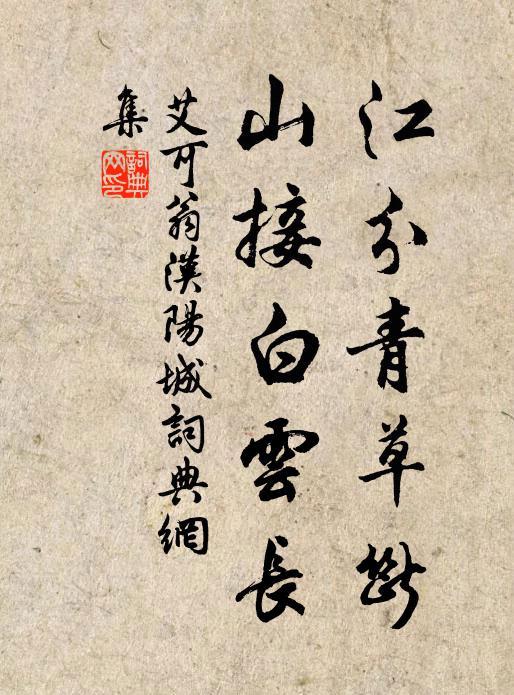 江分青草斷
山接白雲長
艾可翁漢陽城詞典網
集
詞典
网印